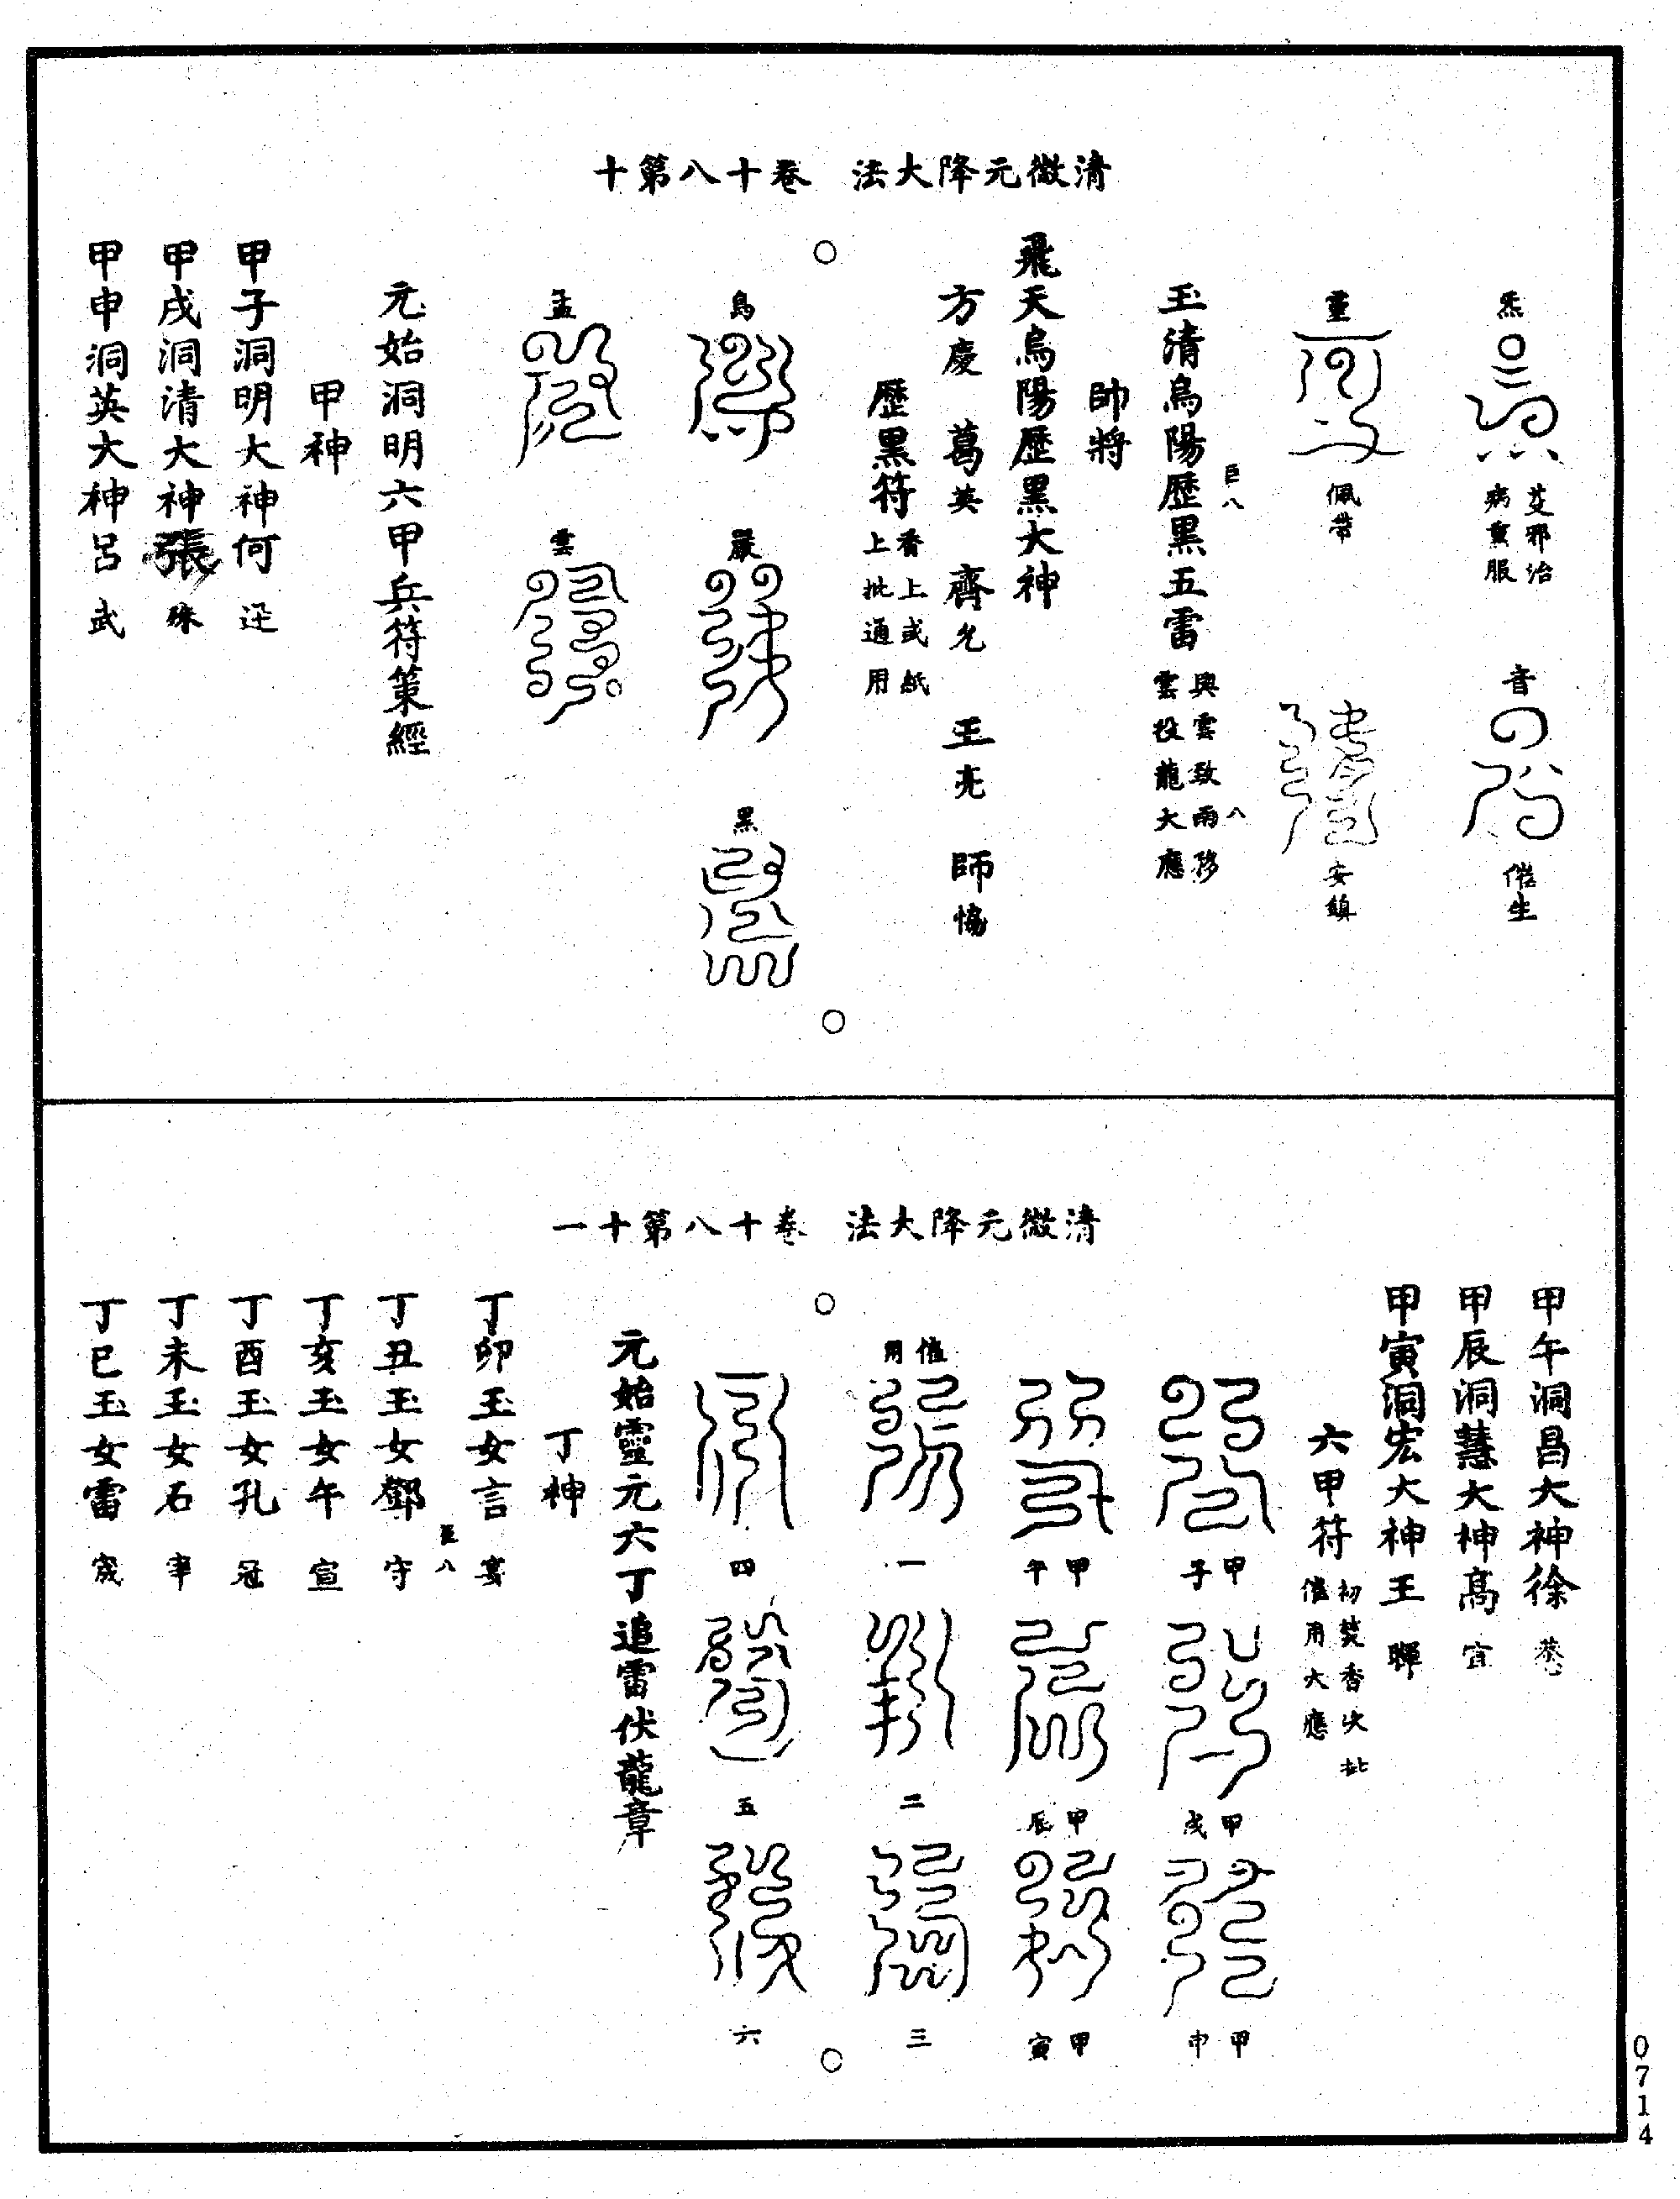 清微元降大法　卷十八第十
炁
艾邪治
病熏服
音
催生
靈
佩帶
安鎮
玉清烏陽歷黑五雷
興雲致雨移
雲投龍大應
巨八
八
帥將
飛天烏陽歷黑大神
方慶　葛英　齊允　王亮　師愶
歷黑符
香上或紙
上批通用
烏
嚴
黑
孟
雲
元始洞明六甲兵符策經
甲神
甲子洞明大神何
甲戌洞清大神張　殊
甲申洞英大神呂　武
清微元降大法　卷十八第十一
甲午洞昌大神徐
甲辰洞慧大神高　宜
甲寅洞宏大神王　暉
六甲符
初焚香次批
催用大應
甲子
甲戌
甲申
甲午
甲辰
甲寅
催用
一
二
三
四
五
六
元始靈元六丁追雷伏龍章
丁神
丁卯玉女言　宴
巨八
丁丑玉女鄧　守
丁亥玉女午　宣
丁酉玉女孔　冠
丁未玉女石　宰
丁巳玉女雷　宬
0714